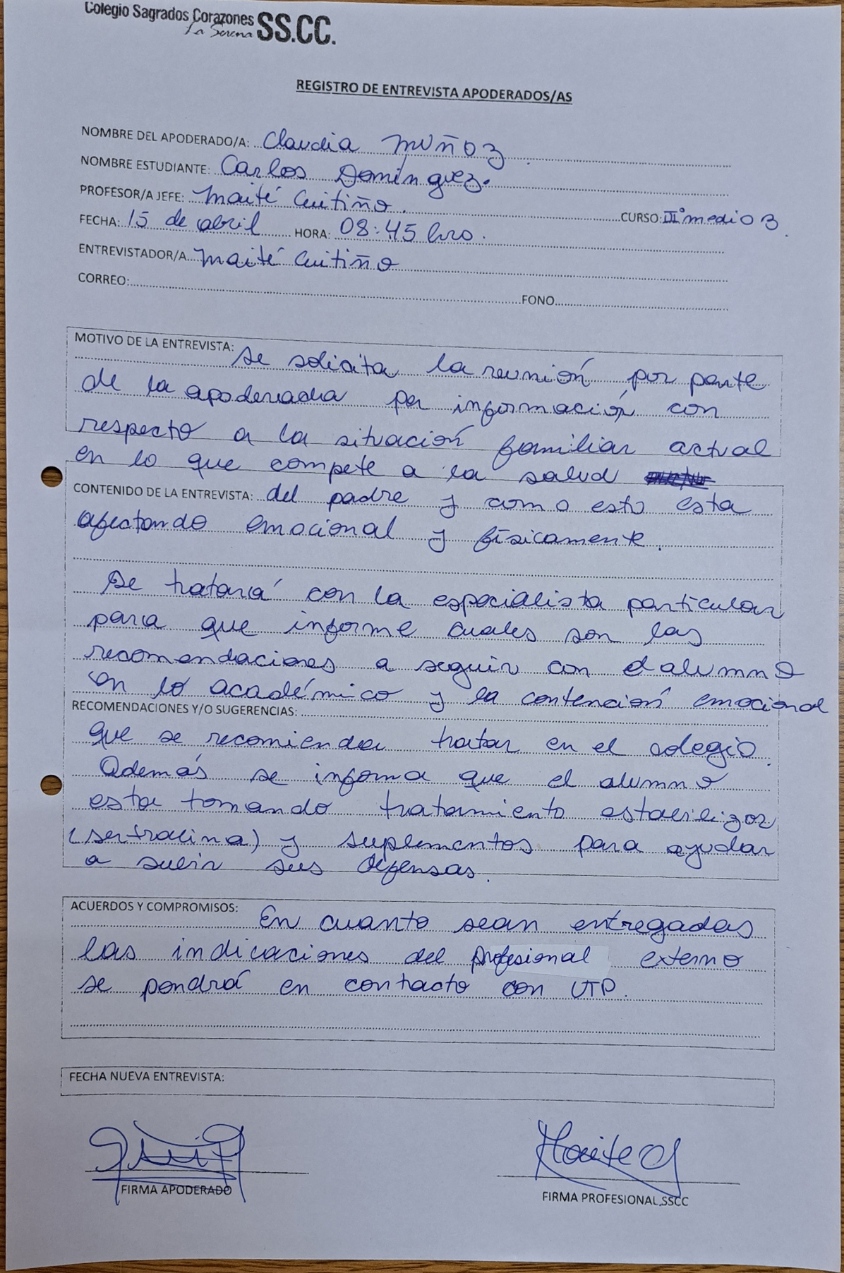 Colegio Sagrados Corazones
La Serena SS.CC.
REGISTRO DE ENTREVISTA APODERADOS/AS
NOMBRE DEL APODERADO/A: Claudia Muñoz
NOMBRE ESTUDIANTE: Carlos Domínguez.
PROFESOR/A JEFE: Maité Cuitiño. CURSO: IIº medio B.
FECHA: 15 de abril HORA: 08:45 hrs.
ENTREVISTADOR/A Maité Cuitiño
CORREO: FONO
MOTIVO DE LA ENTREVISTA: Se solicita la reunión por parte
de la apoderada por información con
respecto a la situación familiar actual
en lo que compete a la salud
CONTENIDO DE LA ENTREVISTA: del padre y como esto esta
afectando emocional y físicamente.
Se tratará con la especialista particular
para que informe cuales son las
recomendaciones a seguir con el alumno
en lo académico y la contención emocional
RECOMENDACIONES Y/O SUGERENCIAS:
que se recomienda tratar en el colegio.
Además se informa que el alumno
esta tomando tratamiento
(sertralina) y suplementos para ayudar
a subir sus defensas.
ACUERDOS Y COMPROMISOS: En cuanto sean entregadas
las indicaciones del profesional externo
se pondrá en contacto con UTP.
FECHA NUEVA ENTREVISTA:
FIRMA APODERADO
FIRMA PROFESIONAL SSCC